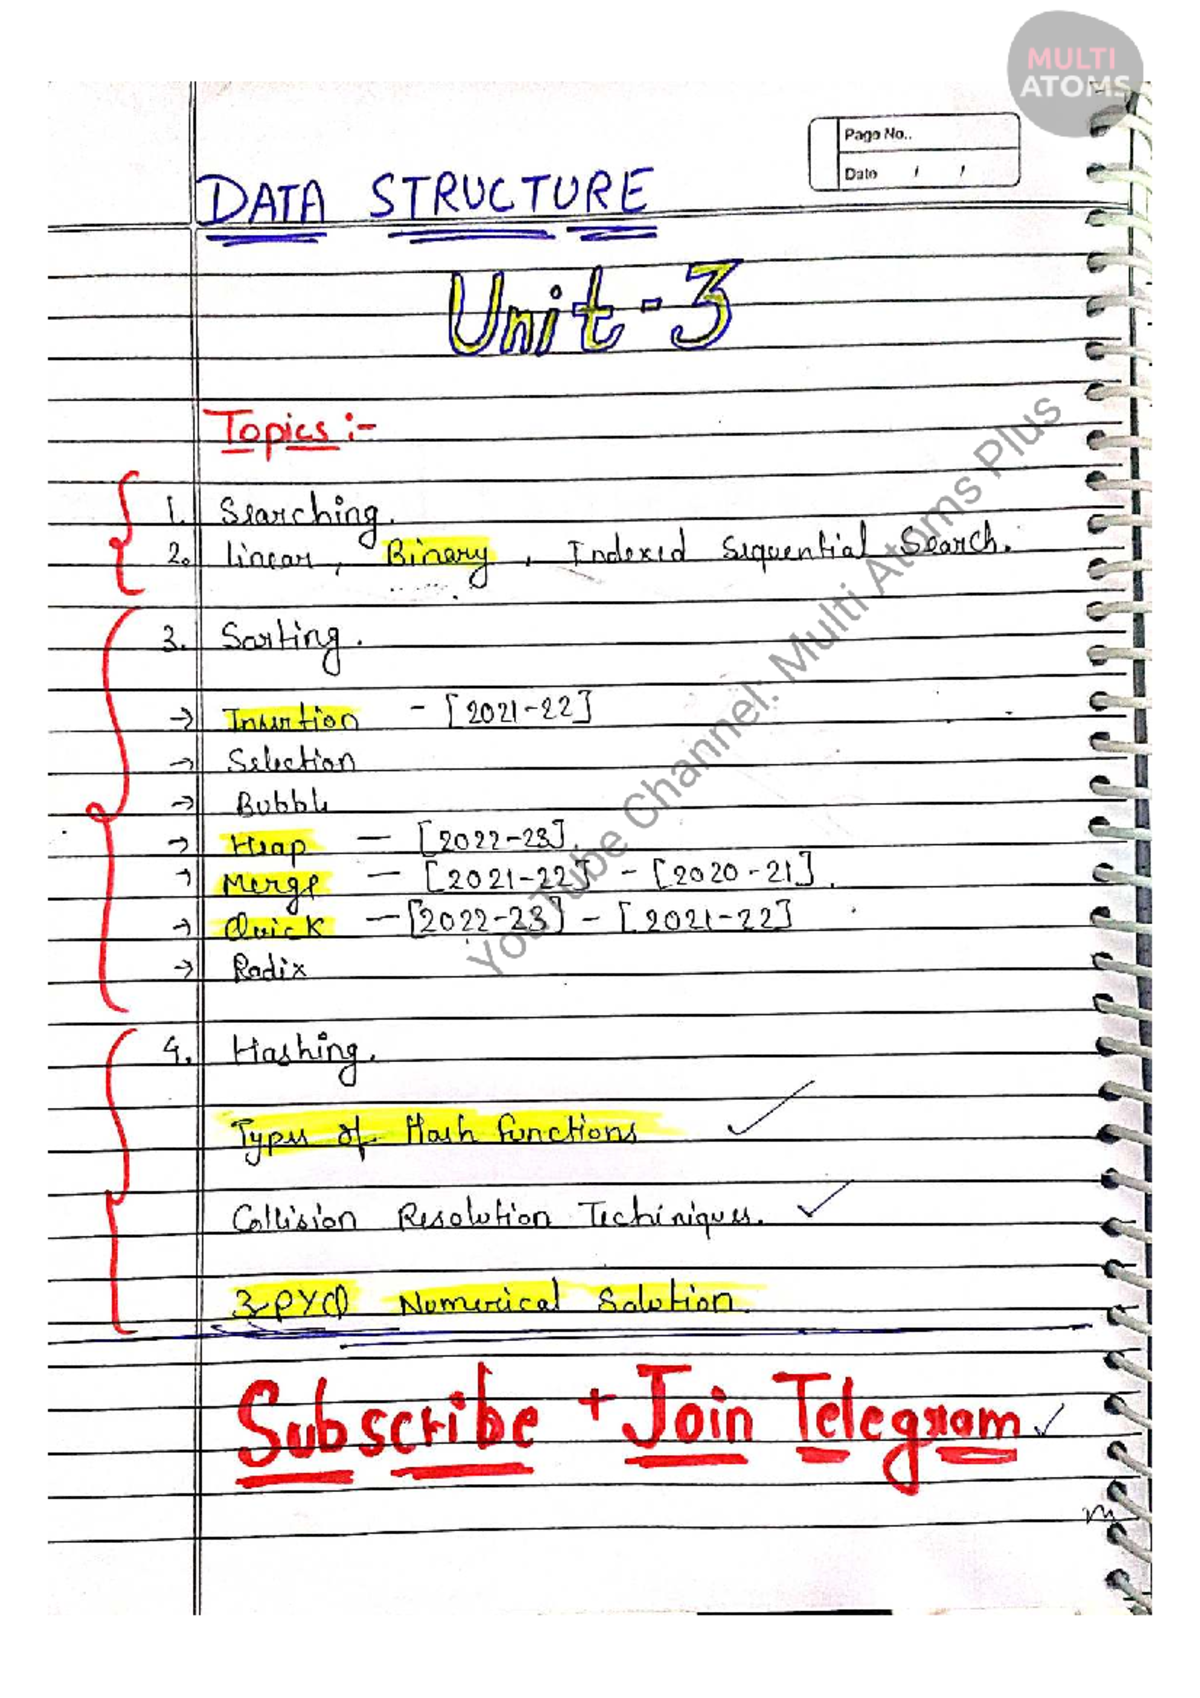 MULTI
ATOMS
Page No..
Date / /
DATA STRUCTURE
Unit-3
Topics :-
1. Searching.
2. linear, Binary, Indexed Sequential Search.
3. Sorting.
→ Insertion - [2021-22]
→ Selection
→ Bubble
→ Heap — [2022-23].
→ Merge — [2021-22] - [2020-21].
→ Quick — [2022-23] - [2021-22]
→ Radix
4. Hashing.
Types of Hash functions
Collision Resolution Techiniques.
3 PYQ Numerical Solution.
Subscribe + Join Telegram
YouTube Channel: Multi Atoms Plus